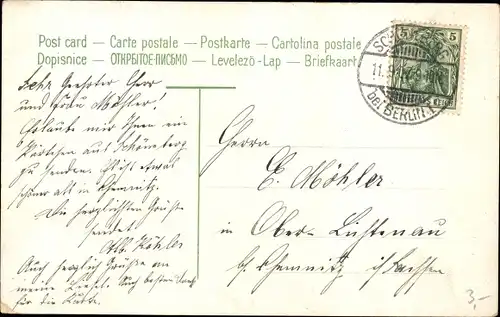 Post card — Carte postale — Postkarte — Cartolina postale
Dopisnice — ОТКРЫТОЕ ПИСЬМО — Levelező-Lap — Briefkaart
5 5
SCH
11.
bei BERLIN
Sehr Geehrter Herr
und Frau Möhler!
Erlaube mir Ihnen ein
Kärtchen aus Schöneberg
zu senden. Ist etwas
schöner als in Chemnitz.
Die herzlichsten Grüße
sendet
Alb. Köhler
Auch herzlich Grüße an
meine Liesel. Auch besten Dank
für die Karte.
Herrn
E. Möhler
in Ober-Lichtenau
b. Chemnitz i/Sachsen
3,-